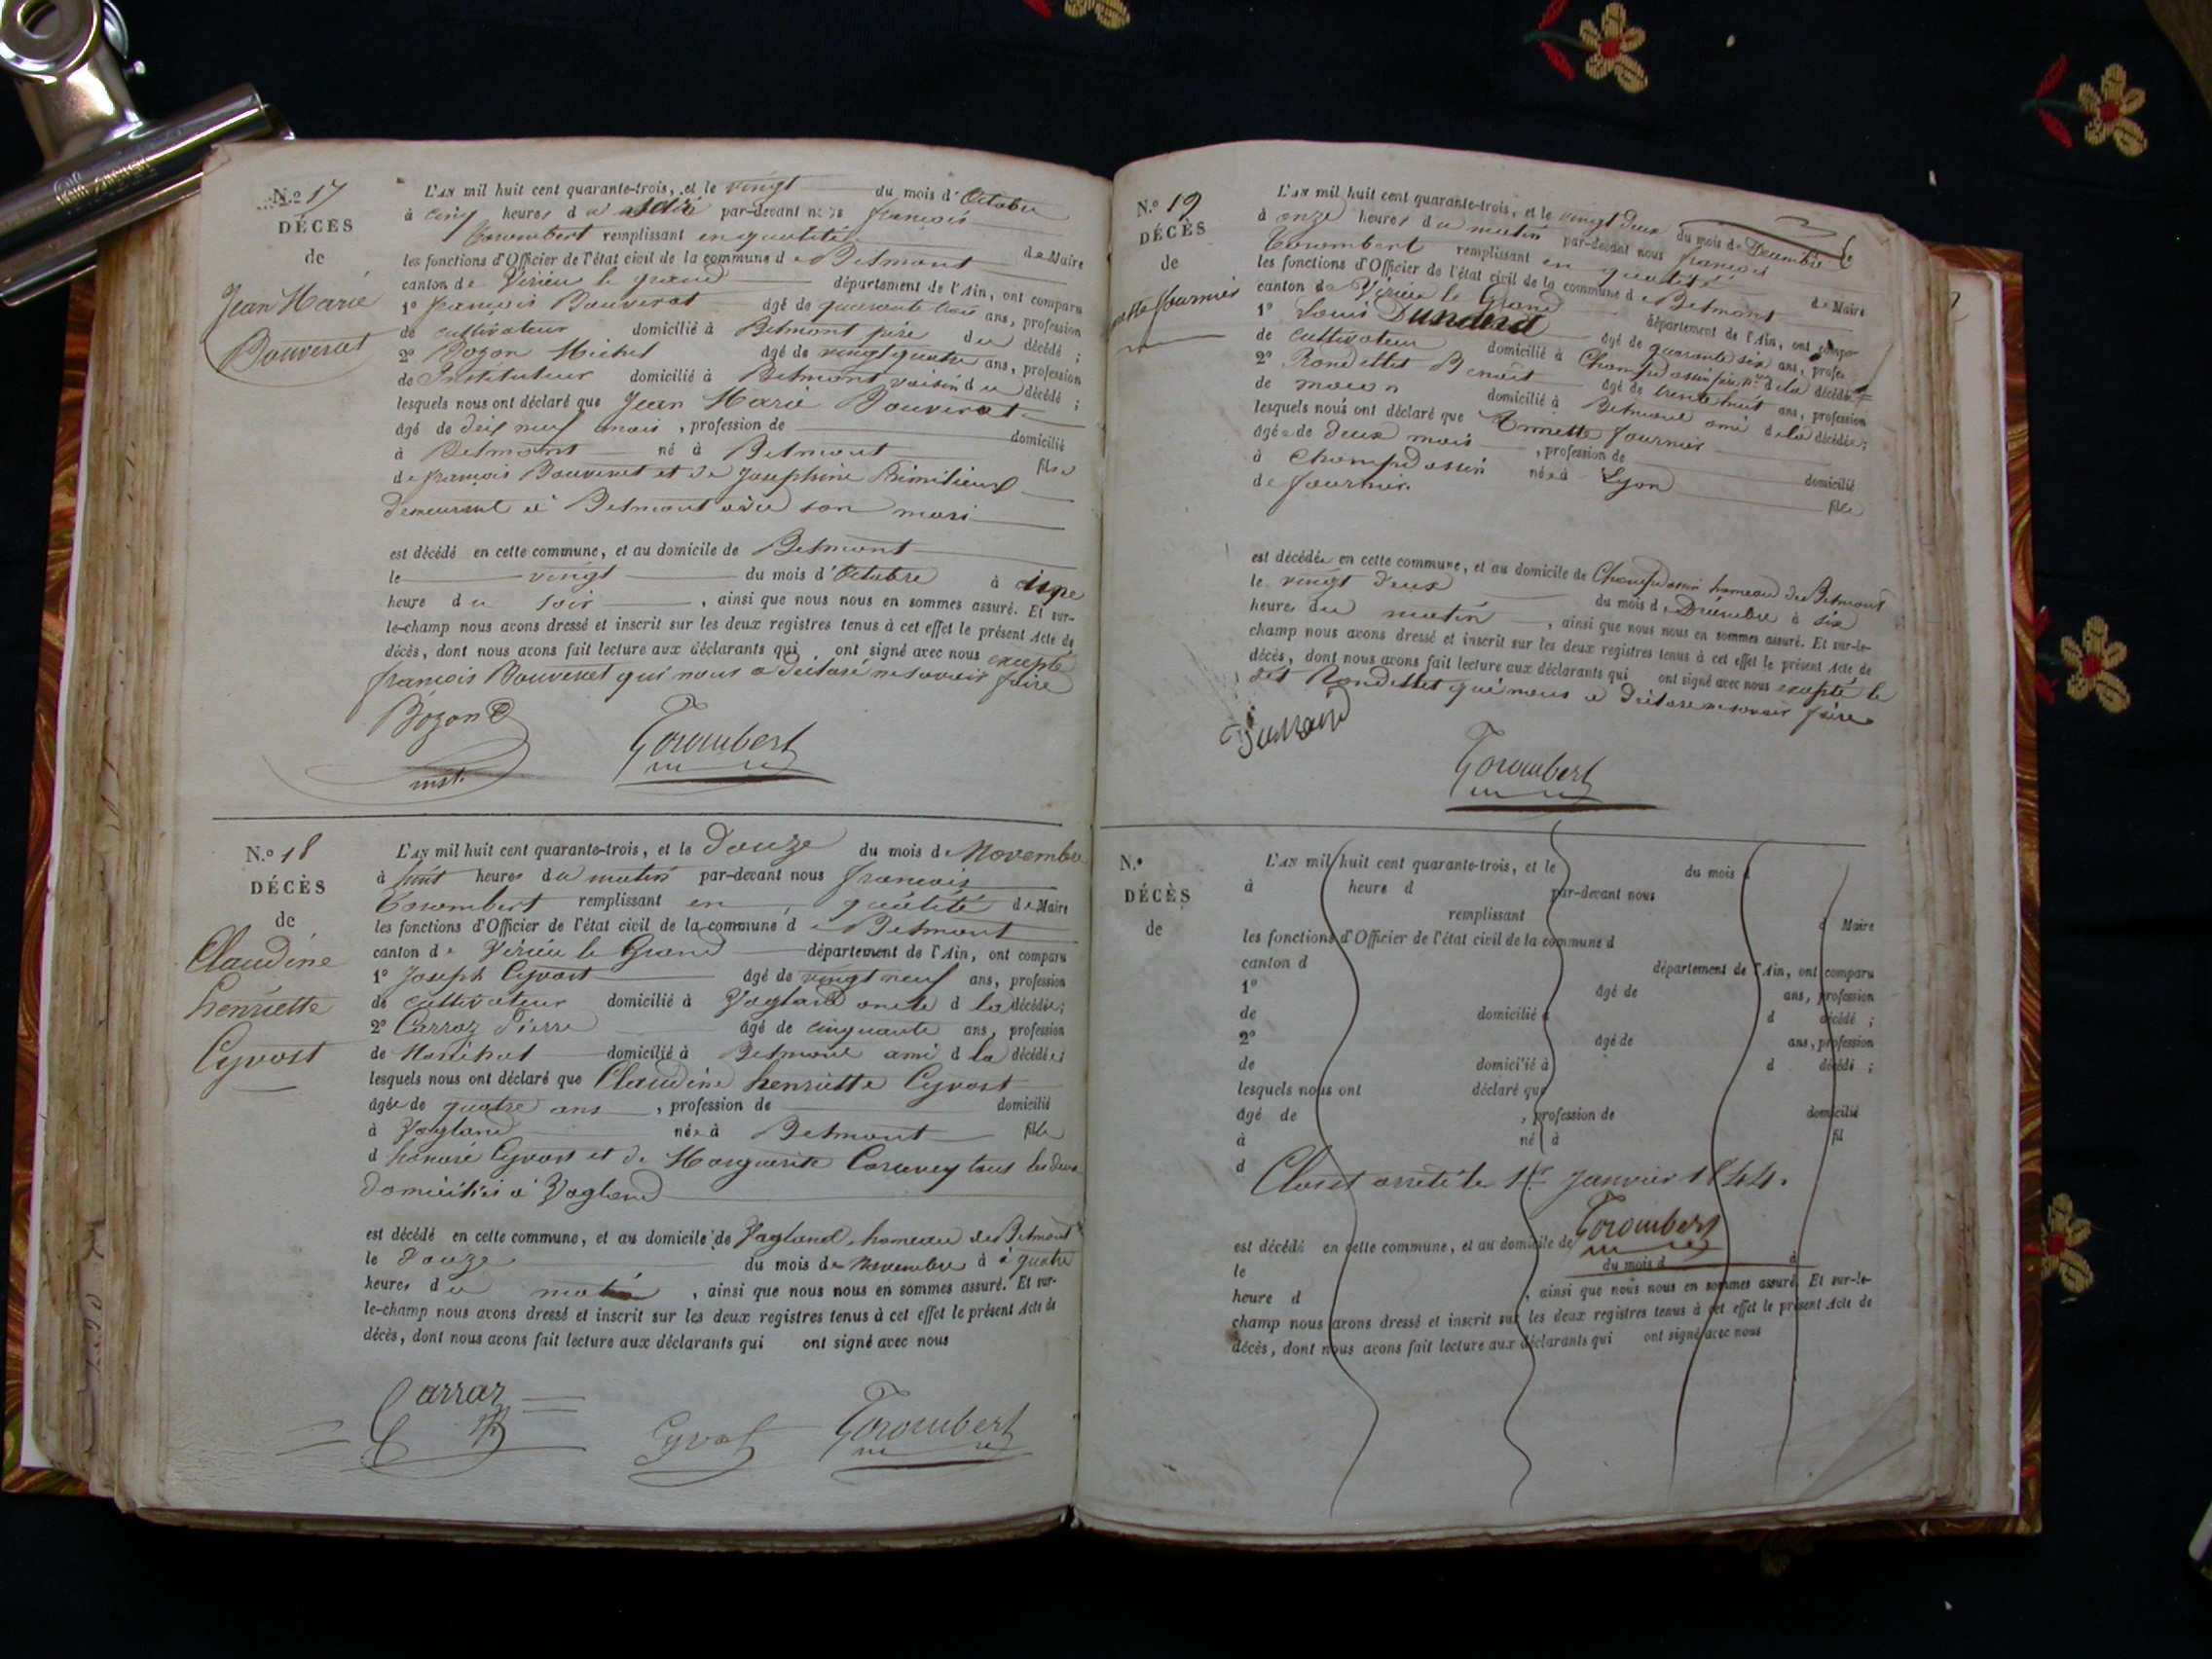 N.o 17
DÉCÈS
de
Jean Marie
Bouverat
L'AN mil huit cent quarante-trois, et le vingt du mois d'Octobre
à cinq heures du soir par-devant nous françois
Corombert remplissant en qualité de Maire
les fonctions d'Officier de l'état civil de la commune de Belmont
canton de Virieu le grand département de l'Ain, ont comparu
1o françois Bouverat âgé de quarante trois ans, profession
de cultivateur domicilié à Belmont père du décédé ;
2o Bozon Michel âgé de vingt quatre ans, profession
de Instituteur domicilié à Belmont voisin du décédé ;
lesquels nous ont déclaré que Jean Marie Bouverat
âgé de dix neuf mois, profession de domicilié
à Belmont né à Belmont fils
de françois Bouverat et de Josephine
demeurant à Belmont avec son mari
est décédé en cette commune, et au domicile de Belmont
le vingt du mois d'Octobre à
heure du soir, ainsi que nous nous en sommes assuré. Et sur-
le-champ nous avons dressé et inscrit sur les deux registres tenus à cet effet le présent Acte de
décès, dont nous avons fait lecture aux déclarants qui ont signé avec nous excepté
françois Bouverat qui nous a déclaré ne savoir faire
Bozon
inst.
Corombert
N.o 18
DÉCÈS
de
Claudine
henriette
Cyvost
L'AN mil huit cent quarante-trois, et le Douze du mois de Novembre
à huit heures du matin par-devant nous françois
Corombert remplissant en qualité de Maire
les fonctions d'Officier de l'état civil de la commune de Belmont
canton de Virieu le Grand département de l'Ain, ont comparu
1o Joseph Cyvost âgé de vingt neuf ans, profession
de cultivateur domicilié à Vogland oncle d la décédée ;
2o Carraz Pierre âgé de cinquante ans, profession
de Maréchal domicilié à Belmont ami d la décédée ;
lesquels nous ont déclaré que Claudine henriette Cyvost
âgée de quatre ans, profession de domicilié
à Vogland née à Belmont fille
d honoré Cyvost et de Marguerite tous les deux
domiciliés à Vogland
est décédé en cette commune, et au domicile de Vogland hameau de Belmont
le Douze du mois de Novembre à à quatre
heures du matin, ainsi que nous nous en sommes assuré. Et sur-
le-champ nous avons dressé et inscrit sur les deux registres tenus à cet effet le présent Acte de
décès, dont nous avons fait lecture aux déclarants qui ont signé avec nous
Carraz
Cyvost Corombert
N.o 19
DÉCÈS
de
fournier
L'AN mil huit cent quarante-trois, et le vingt deux du mois de Décembre
à onze heures du matin par-devant nous françois
Corombert remplissant en qualité de Maire
les fonctions d'Officier de l'état civil de la commune de Belmont
canton de Virieu le Grand département de l'Ain, ont compar
1o Louis Dunand âgé de quarante six ans, profes
de cultivateur domicilié à Champdossin père de la décédée
2o Rondettet Benoit âgé de trente huit ans, profession
de maçon domicilié à Belmont ami de la décédée ;
lesquels nous ont déclaré que Annette fournier
âgée de deux mois, profession de domicilié
à Champdossin née à Lyon fille
de fournier.
est décédée en cette commune, et au domicile de Champdossin hameau de Belmont
le vingt deux du mois d Décembre à six
heures du matin, ainsi que nous nous en sommes assuré. Et sur-le-
champ nous avons dressé et inscrit sur les deux registres tenus à cet effet le présent Acte de
décès, dont nous avons fait lecture aux déclarants qui ont signé avec nous excepté le
dit Rondettet qui nous a déclaré ne savoir faire
Dunand
Corombert
N.o
DÉCÈS
de
L'AN mil huit cent quarante-trois, et le du mois d
à heure d par-devant nous
remplissant d Maire
les fonctions d'Officier de l'état civil de la commune d
canton d département de l'Ain, ont comparu
1o âgé de ans, profession
de domicilié à d décédé ;
2o âgé de ans, profession
de domicilié à d décédé ;
lesquels nous ont déclaré que
âgé de , profession de domicilié
à né à fil
d Clos et arrêté le 1er Janvier 1844.
Corombert
est décédé en cette commune, et au domicile de
le du mois d à
heure d , ainsi que nous nous en sommes assuré. Et sur-le-
champ nous avons dressé et inscrit sur les deux registres tenus à cet effet le présent Acte de
décès, dont nous avons fait lecture aux déclarants qui ont signé avec nous